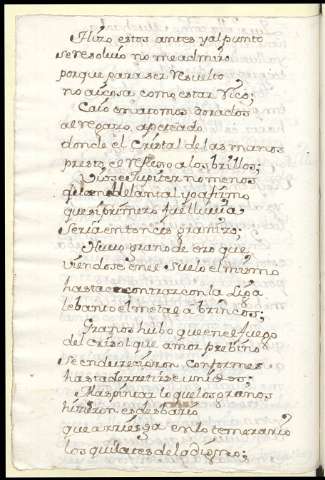 Hizo estos antes y al punto
se resoluio no me admiro
porque para ser resuelto
no ai cosa como estar Rico;
Caio en atomos dorados
al regazo, apetecido
donde el Cristal de las manos
presto el reflexo a los brillos;
Viose Jupiter no menos
que en el delantal y o afirmo
que si primero fue lluuia
seria entonces graniço;
Huuo grano de oro que
viendose en el suelo el mismo
hasta encontrar con la Liga
lebanto el metal a brincos;
Granos hubo que en el fuego
del crisol que amor prebino
se endurecieron conformes
hasta derretirse unidos;
Mas pintar lo que los granos
hizieron es desbario
que arriesga en lo temerario
los quilates de lo digno;